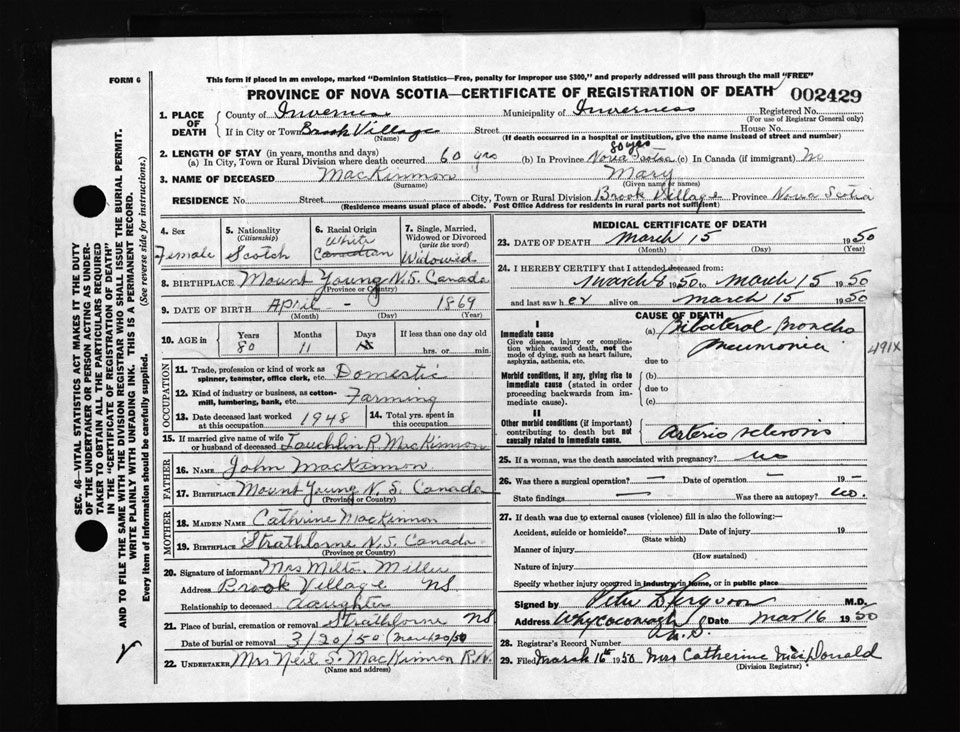 FORM 6
This form if placed in an envelope, marked "Dominion Statistics—Free, penalty for improper use $300," and properly addressed will pass through the mail "FREE"
PROVINCE OF NOVA SCOTIA—CERTIFICATE OF REGISTRATION OF DEATH 002429
SEC. 46—VITAL STATISTICS ACT MAKES IT THE DUTY
OF THE UNDERTAKER OR PERSON ACTING AS UNDER-
TAKER TO OBTAIN ALL THE PARTICULARS REQUIRED
IN THE "CERTIFICATE OF REGISTRATION OF DEATH"
AND TO FILE THE SAME WITH THE DIVISION REGISTRAR WHO SHALL ISSUE THE BURIAL PERMIT.
WRITE PLAINLY WITH UNFADING INK. THIS IS A PERMANENT RECORD.
Every item of Information should be carefully supplied. (See reverse side for instructions.)
1. PLACE OF DEATH County of Inverness Municipality of Inverness Registered No.
(For use of Registrar General only)
If in City or Town Brook Village Street House No.
(Name) (If death occurred in a hospital or institution, give the name instead of street and number)
2. LENGTH OF STAY (in years, months and days) 80 yrs
(a) In City, Town or Rural Division where death occurred 60 yrs (b) In Province Nova Scotia (c) In Canada (if immigrant) no
3. NAME OF DECEASED MacKinnon Mary
(Surname) (Given name or names)
RESIDENCE No. Street City, Town or Rural Division Brook Village Province Nova Scotia
(Residence means usual place of abode. Post Office Address for residents in rural parts not sufficient)
4. Sex Female
5. Nationality (Citizenship) Scotch
6. Racial Origin White Canadian
7. Single, Married, Widowed or Divorced (write the word) Widowed
8. BIRTHPLACE Mount Young N.S. Canada
(Province or Country)
9. DATE OF BIRTH April - 1869
(Month) (Day) (Year)
10. AGE in Years Months Days If less than one day old
80 11 hrs. or min.
OCCUPATION
11. Trade, profession or kind of work as spinner, teamster, office clerk, etc. Domestic
12. Kind of industry or business, as cotton-mill, lumbering, bank, etc. Farming
13. Date deceased last worked at this occupation 1948 14. Total yrs. spent in this occupation
15. If married give name of wife or husband of deceased Lauchlin R. MacKinnon
FATHER
16. NAME John MacKinnon
17. BIRTHPLACE Mount Young N.S. Canada
(Province or Country)
MOTHER
18. MAIDEN NAME Cathrine MacKinnon
19. BIRTHPLACE Strathlorne N.S. Canada
(Province or Country)
20. Signature of informant Mrs Milton Miller
Address Brook Village NS
Relationship to deceased daughter
21. Place of burial, cremation or removal Strathlorne NS
Date of burial or removal 3/20/50 (March 20/50)
22. UNDERTAKER Mrs Neil S. MacKinnon R.N.
(Name and address)
MEDICAL CERTIFICATE OF DEATH
23. DATE OF DEATH March 15 1950
(Month) (Day) (Year)
24. I HEREBY CERTIFY that I attended deceased from:
March 6 1950 to March 15 1950
and last saw her alive on March 15 1950
CAUSE OF DEATH
I
Immediate cause
Give disease, injury or complication which caused death, not the mode of dying, such as heart failure, asphyxia, asthenia, etc.
(a) Bilateral Broncho
Pneumonia 491X
due to
Morbid conditions, if any, giving rise to immediate cause (stated in order proceeding backwards from immediate cause).
(b)
due to
(c)
II
Other morbid conditions (if important) contributing to death but not causally related to immediate cause.
Arterio sclerosis
25. If a woman, was the death associated with pregnancy? no
26. Was there a surgical operation? — Date of operation — 19 —
State findings — Was there an autopsy? no.
27. If death was due to external causes (violence) fill in also the following:—
Accident, suicide or homicide? Date of injury 19
(State which)
Manner of injury
(How sustained)
Nature of injury
Specify whether injury occurred in industry, in home, or in public place
Signed by Peter D Ferguson M.D.
Address Whycocomagh N.S. Date Mar 16 1950
28. Registrar's Record Number
29. Filed March 16th 1950 Mrs Catherine MacDonald
(Division Registrar)